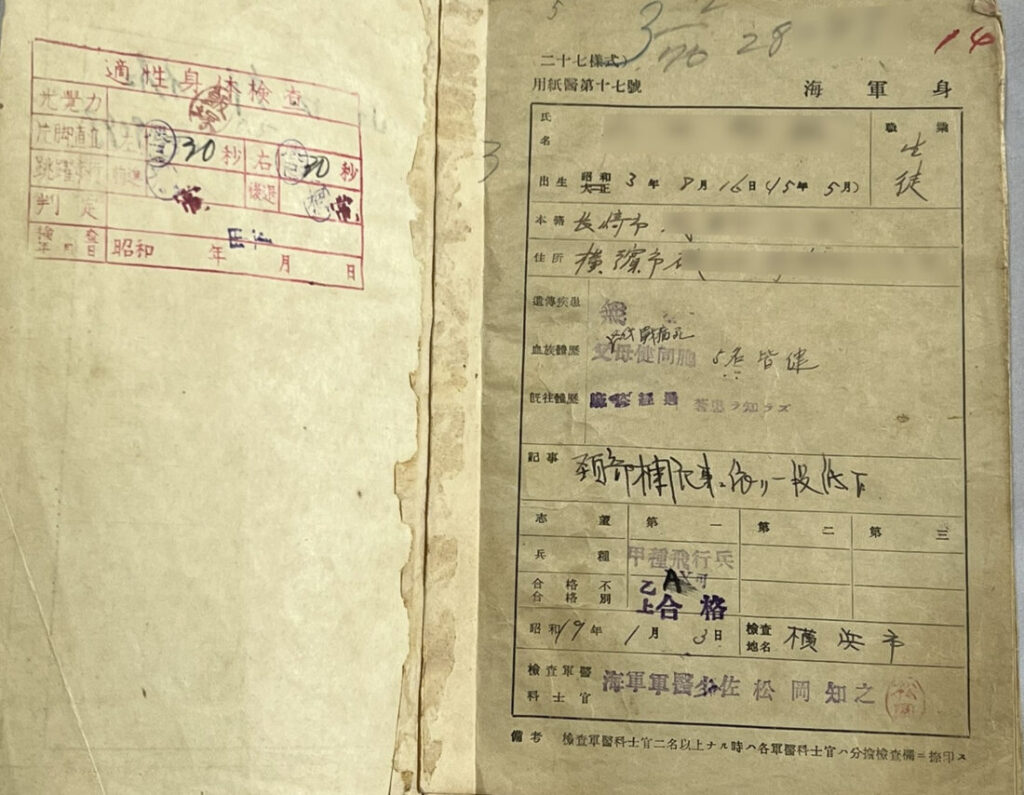 適性身体検査
光覚力
片脚直立
30秒 右 20秒
跳躍歩行 前進 後退
判定
検査年月日 昭和 年 月 日
5
28
14
二十七様式)
用紙醫第十七號
海軍身
氏名
職業 生徒
出生 昭和 大正 3年8月16日(15年5月)
本籍 長崎市
住所 横濱市
遺傳疾患 無
血族體歴 父母健同胞 5名皆健
既往體歴 麻疹経過 著患ヲ知ラズ
記事
志望 第一 第二 第三
兵種 甲種飛行兵
合格不合格別 乙 A 上合格
昭和19年1月3日 檢査地名 横浜市
檢査軍醫科士官 海軍軍醫少佐 松岡知之
備考 檢査軍醫科士官二名以上ナル時ハ各軍醫科士官ハ分擔檢査欄ニ捺印ス